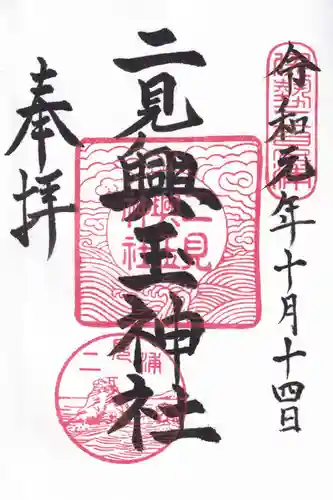 令和元年十月十四日
二見興玉神社
奉拝
二見
興玉
神社
二見浦